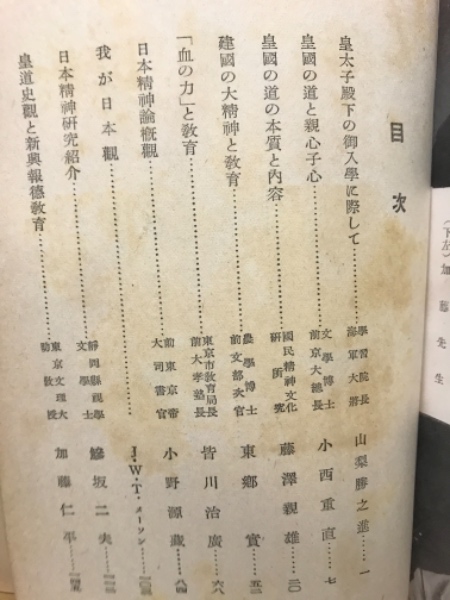 目次
皇太子殿下の御入學に際して……學習院長 海軍大將 山梨勝之進……一
皇國の道と親心子心……文學博士 前京大總長 小西重直……七
皇國の道の本質と内容……國民精神文化研究所 藤澤親雄……二〇
建國の大精神と敎育……農學博士 前文部次官 東鄕實……五二
「血の力」と敎育……東京市敎育局長 前大孝塾長 皆川治廣……六八
日本精神論槪觀……前東京帝大司書官 小野源藏……八四
我が日本觀……J・W・T・メーソン……一〇三
日本精神硏究紹介……靜岡縣視學 文學士 鰺坂二夫
皇道史觀と新興報德敎育……東京文理大助敎授 加藤仁平……一四五
(下左)加藤先生